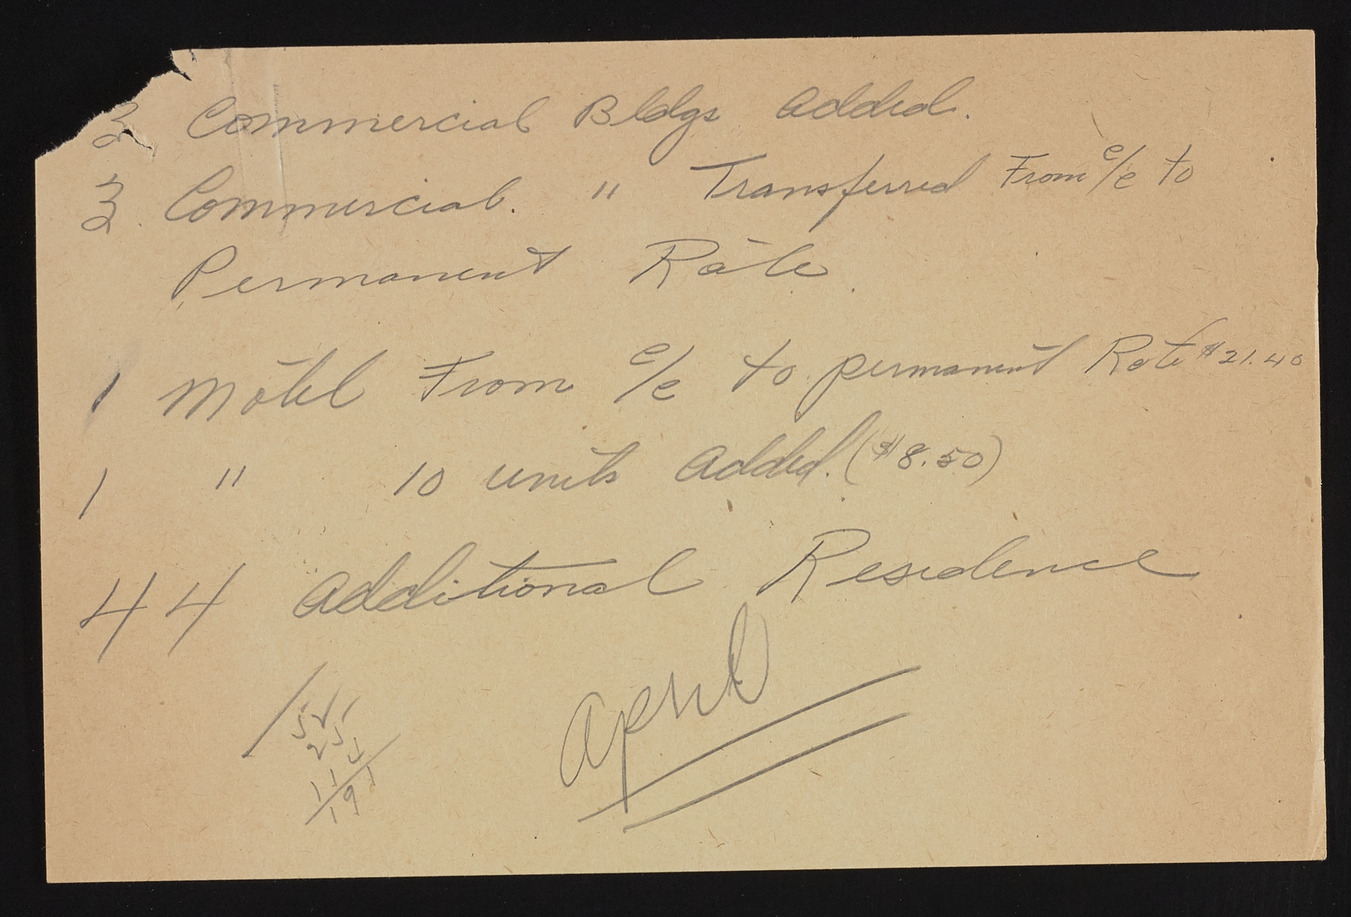 3 Commercial Bldgs added.
3. Commercial. " Transferred From c/e to
Permanent Rate.
1 Motel From c/e to permanent Rate $21.40
1 " 10 units added. ($8.50)
44 additional Residence
April
55
25
111
191